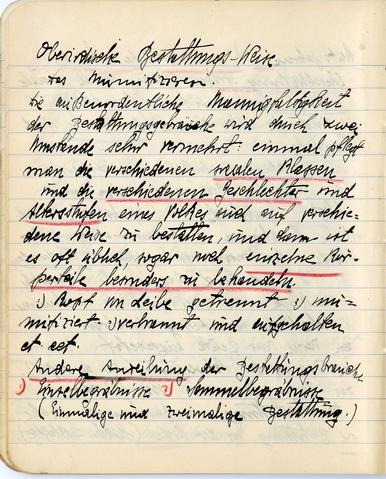 Oberirdische Bestattungs-Weise.
Das Mumifizieren.
Die außerordentliche Mannigfaltigkeit
der Bestattungsgebräuche wird durch zwei
Umstände sehr vermehrt: einmal pflegt
man die verschiedenen sozialen Klassen
und die verschiedenen Geschlechter und
Altersstufen eines Volkes auch auf verschie=
dene Weise zu bestatten, und dann ist
es oft üblich, sogar noch einzelne Kör=
perteile besonders zu behandeln.
1) Kopf vom Leibe getrennt 2) mu=
mifiziert. 3) verbrannt und aufgehalten
et cet.
Andere Einteilung der Bestattungsbräuche
1) Einzelbegräbnisse 2) Sammelbegräbnisse
(Einmalige und zweimalige Bestattung.)